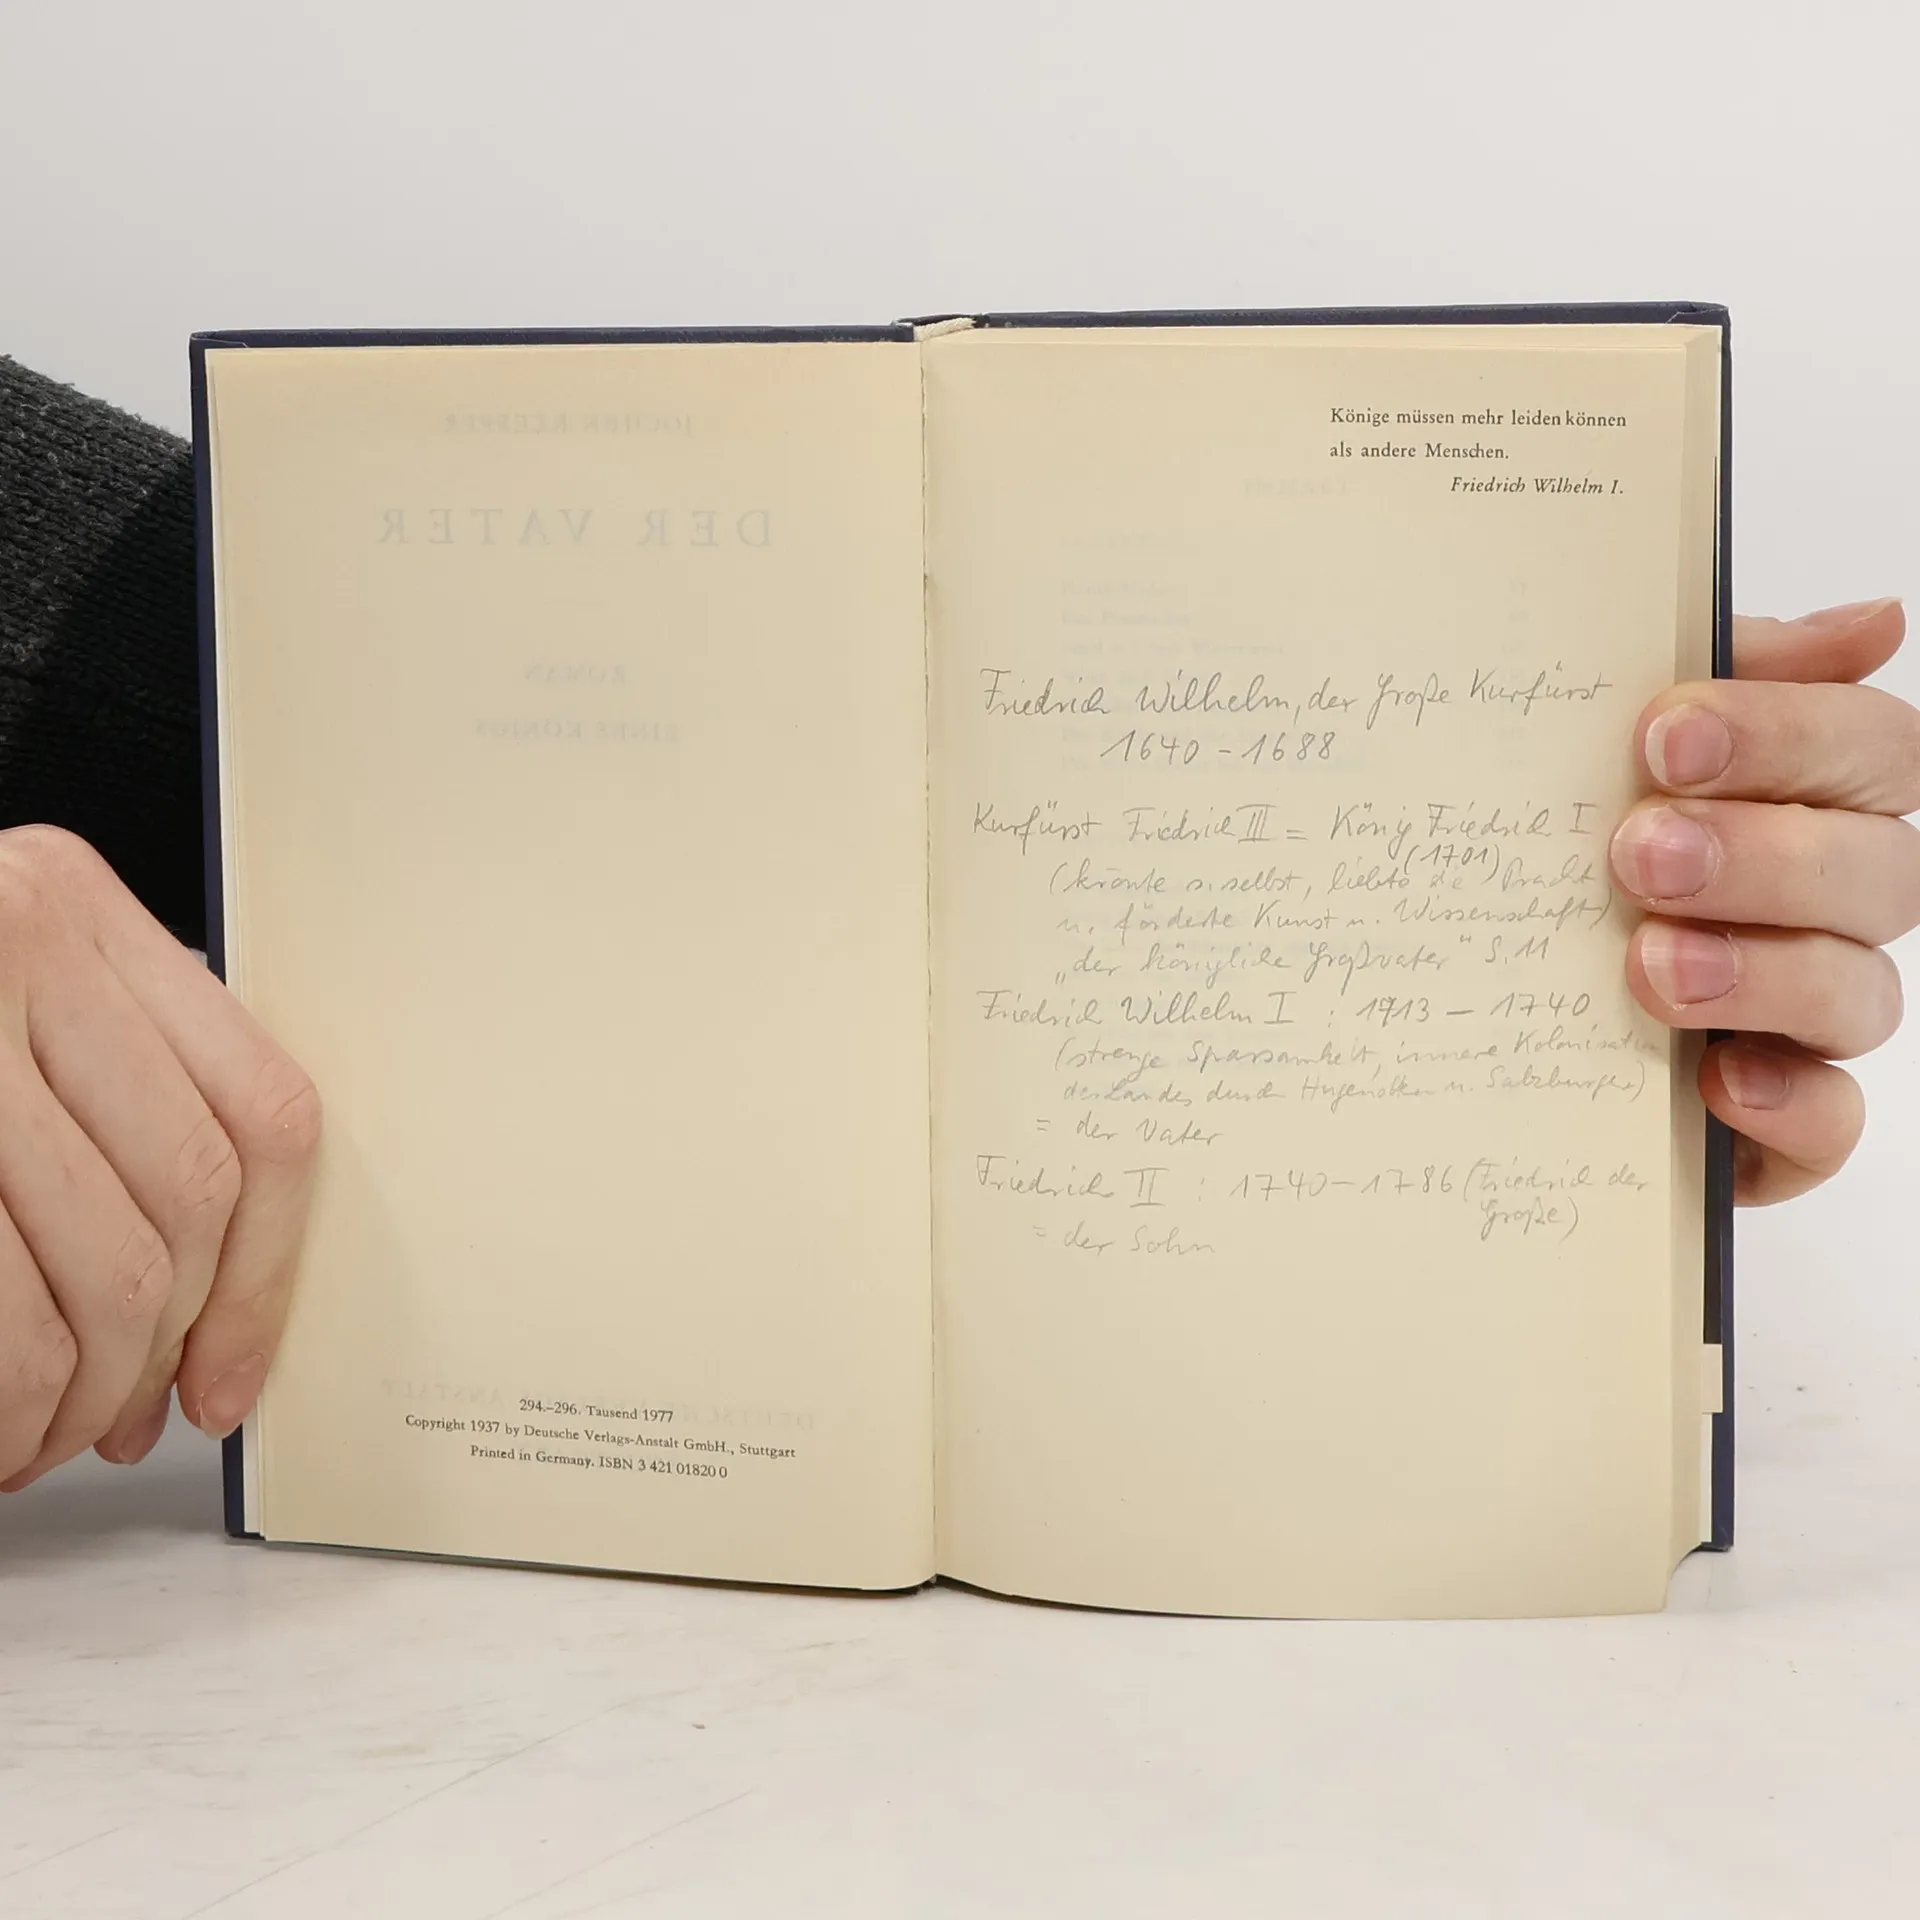 JOCHEN KLEPPER
DER VATER
ROMAN
EINES KÖNIGS
294.–296. Tausend 1977
Copyright 1937 by Deutsche Verlags-Anstalt GmbH., Stuttgart
Printed in Germany. ISBN 3 421 01820 0
Könige müssen mehr leiden können
als andere Menschen.
Friedrich Wilhelm I.
Friedrich Wilhelm, der Große Kurfürst
1640 - 1688
Kurfürst Friedrich III = König Friedrich I
(1701)
(krönte s. selbst, liebte die Pracht
u. förderte Kunst u. Wissenschaft)
„der königliche Großvater" S. 11
Friedrich Wilhelm I : 1713 – 1740
(strenge Sparsamkeit, innere Kolonisation
des Landes durch Hugenotten u. Salzburger)
= der Vater
Friedrich II : 1740 – 1786 (Friedrich der
Große)
= der Sohn